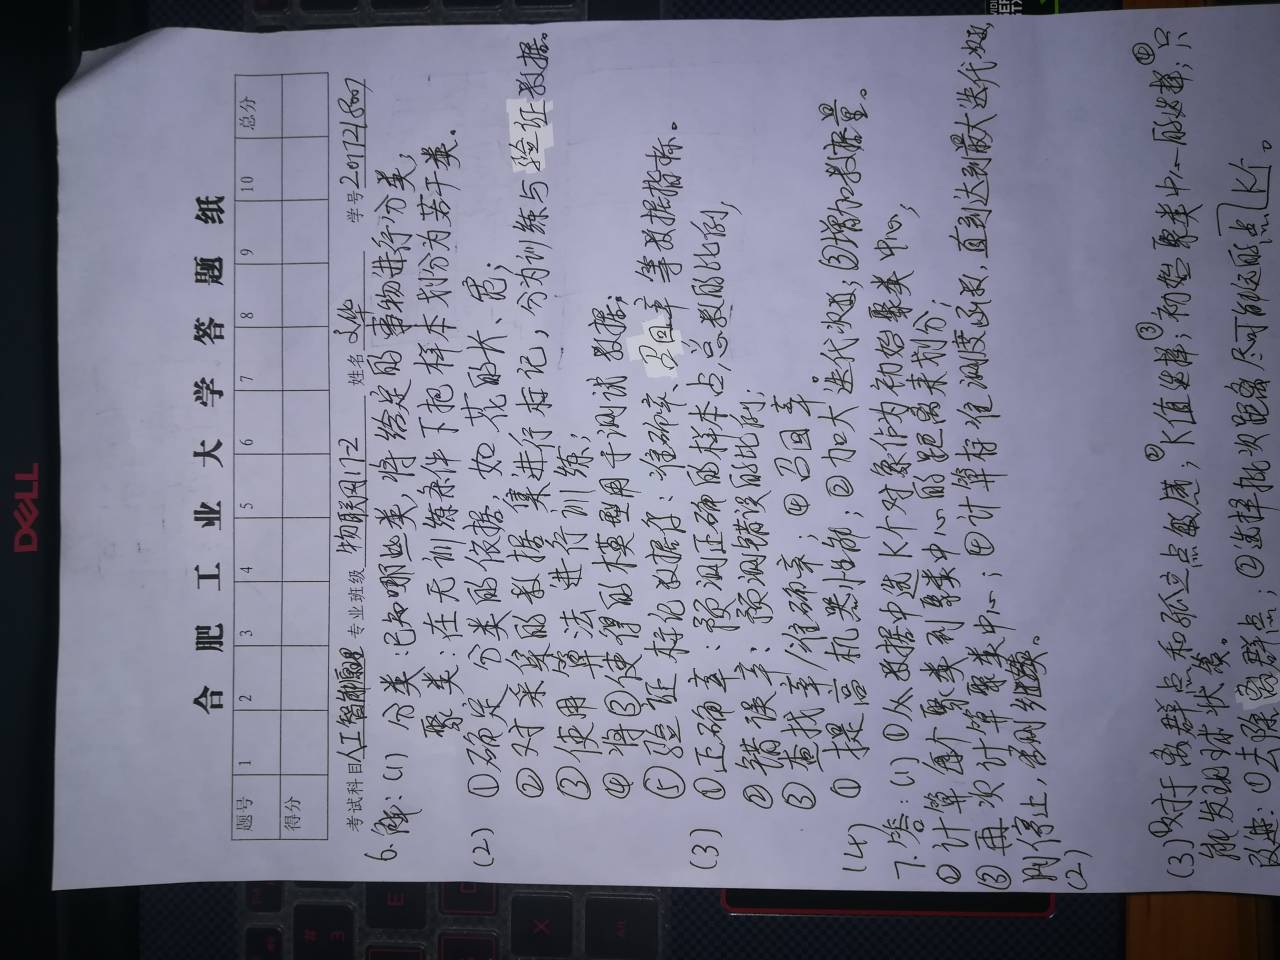 DELL
合肥工业大学答题纸
题号 1 2 3 4 5 6 7 8 9 10 总分
得分
考试科目 人工智能原理 专业班级 物联网17-2 姓名 文华 学号 2017218007
6.解:(1) 分类:已知哪些类,将给定的事物进行分类;
聚类:在无训练条件下把样本划分为若干类。
(2) ①确定分类的依据,如花的长、宽;
②对采集的数据集进行标记,分为训练与验证数据。
③使用算法进行训练;
④将③使得的模型用于测试数据;
⑤验证标记数据后:准确率、召回率等数据指标。
(3) ①正确率:预测正确的样本占总数的比例,
②错误率:预测错误的比例;
③查找率/准确率;④召回率。
(4) ①提高机器性能;②加大迭代次数;③增加数据量。
7.答:(1) ①从数据中选K个对象作为初始聚类中心;
②计算每个聚类到聚类中心的距离来划分;
③再次计算聚类中心;④计算标准测度函数,直到达到最大迭代次数,
则停止,否则继续。
(2)
(3) ①对于离群点和孤立点敏感;②K值选择;③初始聚类中心的选择;④只
能发现球状簇。
改进:①去除离群点;②选择批次距离尽可能远的点K个。